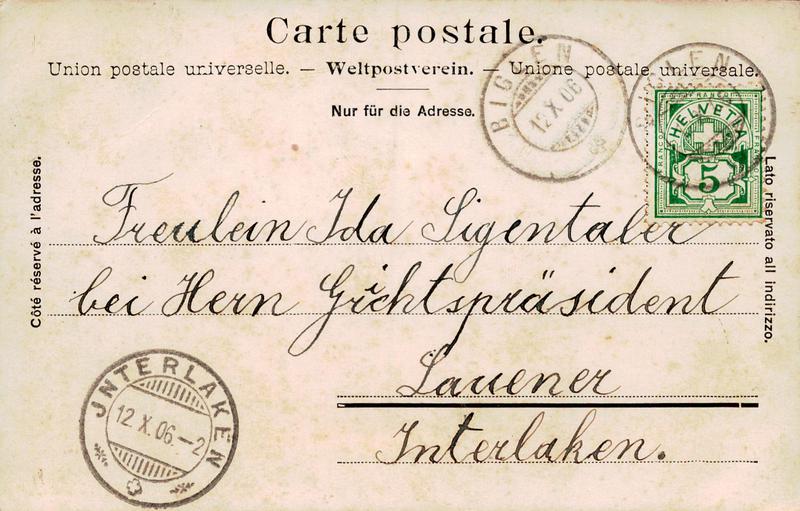 Carte postale.
Union postale universelle. — Weltpostverein. — Unione postale universale.
Nur für die Adresse.
BIGLEN
12 X 06
BIGLEN
HELVETIA
FRANCO
5
Côté réservé à l'adresse.
Lato riservato all indirizzo.
Freulein Ida Sigentaler
bei Hern Grichtspräsident
Lauener
Interlaken.
JNTERLAKEN
12 X. 06.–2